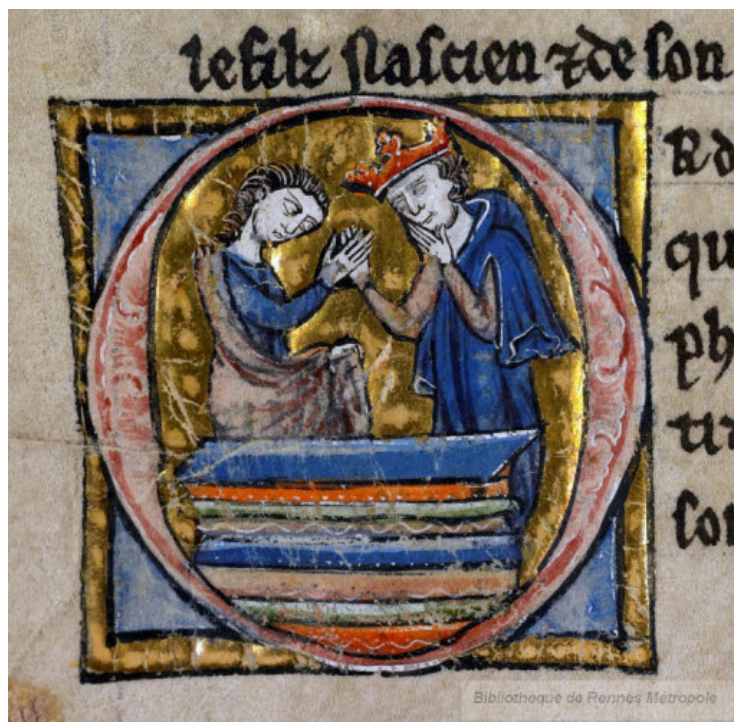 lefilz nascien ⁊ de son
O R d
qu
ph
tir
son
Bibliothèque de Rennes Métropole